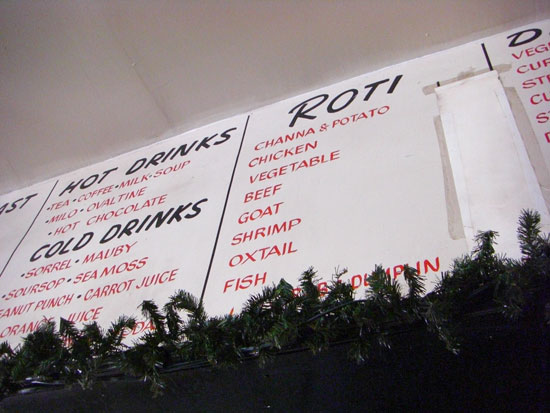 AST
HOT DRINKS
•TEA•COFFEE•MILK•SOUP
•MILO•OVALTINE
•HOT CHOCOLATE
COLD DRINKS
•SORREL•MAUBY
•SOURSOP•SEA MOSS
PEANUT PUNCH•CARROT JUICE
ORANGE JUICE
ROTI
CHANNA & POTATO
CHICKEN
VEGETABLE
BEEF
GOAT
SHRIMP
OXTAIL
FISH
D
VEG
CUR
STE
CU
ST